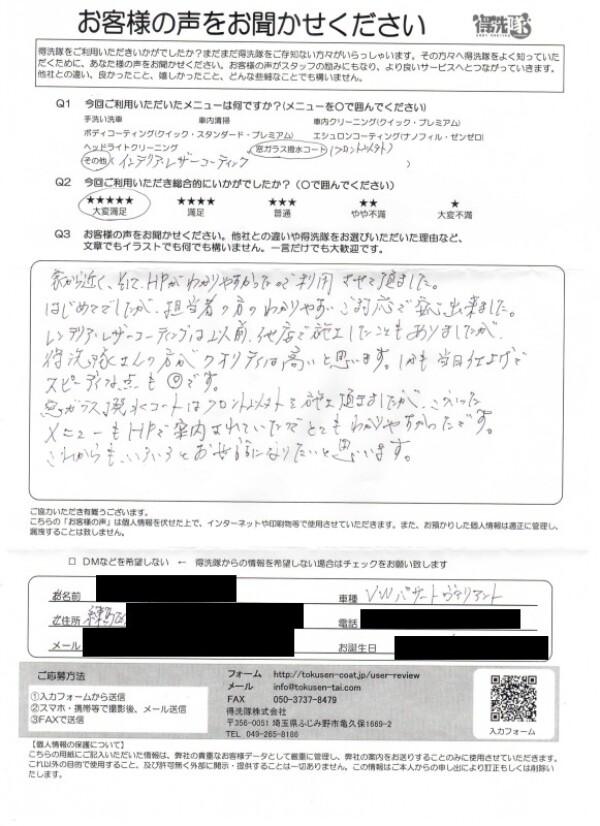 お客様の声をお聞かせください
得洗隊
得洗隊をご利用いただきいかがでしたか?まだまだ得洗隊をご存知ない方々がいらっしゃいます。その方々へ得洗隊をよく知っていた
だくために、あなた様の声をお聞かせください。お客様の声がスタッフの励みにもなり、より良いサービスへとつながっていきます。
他社との違い、良かったこと、嬉しかったこと、どんな些細なことでも構いません。
Q1 今回ご利用いただいたメニューは何ですか?(メニューを○で囲んでください)
手洗い洗車 車内清掃 車内クリーニング(クイック・プレミアム)
ボディコーティング(クイック・スタンダード・プレミアム) エシュロンコーティング(ナノフィル・ゼンゼロ)
ヘッドライトクリーニング 窓ガラス撥水コート (フロント以外)
その他( インテリア・レザーコーティング )
Q2 今回ご利用いただき総合的にいかがでしたか?(○で囲んでください)
★★★★★ ★★★★ ★★★ ★★ ★
大変満足 満足 普通 やや不満 大変不満
Q3 お客様の声をお聞かせください。他社との違いや得洗隊をお選びいただいた理由など、
文章でもイラストでも何でも構いません。一言だけでも大歓迎です。
家から近く、そして、HPがわかりやすかったので利用させて頂ました。
はじめてでしたが、担当者の方のわかりやすいご対応で安心出来ました。
インテリア・レザーコーティングは以前、他店で施工したこともありましたが、
得洗隊さんの方がクオリティは高いと思います。しかも当日仕上げで
スピーディな点も◎です。
窓ガラス撥水コートはフロント以外を施工頂きましたが、こういった
メニューもHPで案内されていたのでとてもわかりやすかったです。
これからも、いろいろとお世話になりたいと思います。
ご協力いただき有難うございます。
こちらの「お客様の声」は個人情報を伏せた上で、インターネットや印刷物等で使用させていただきます。また、お預かりした個人情報は適正に管理し、
漏洩することは致しません。
□ DMなどを希望しない ← 得洗隊からの情報を希望しない場合はチェックをお願い致します
お名前 車種 VWパサートヴァリアント
ご住所 練馬区 電話
メール お誕生日
ご応募方法
①入力フォームから送信
②スマホ・携帯等で撮影後、メール送信
③FAXで送信
フォーム http://tokusen-coat.jp/user-review
メール info@tokusen-tai.com
FAX 050-3737-8479
得洗隊株式会社
〒356-0051 埼玉県ふじみ野市亀久保1669-2
TEL 049-265-8186
入力フォーム
【個人情報の保護について】
こちらの用紙にご記入いただいた情報は、弊社の貴重なお客様データとして厳重に管理し、弊社の案内をお送りすることのみに使用させていただきます。
これ以外の目的で使用すること、及び許可無く外部に開示・提供することは一切ありません。この情報はご本人からの申し出により訂正もしくは削除い
たします。